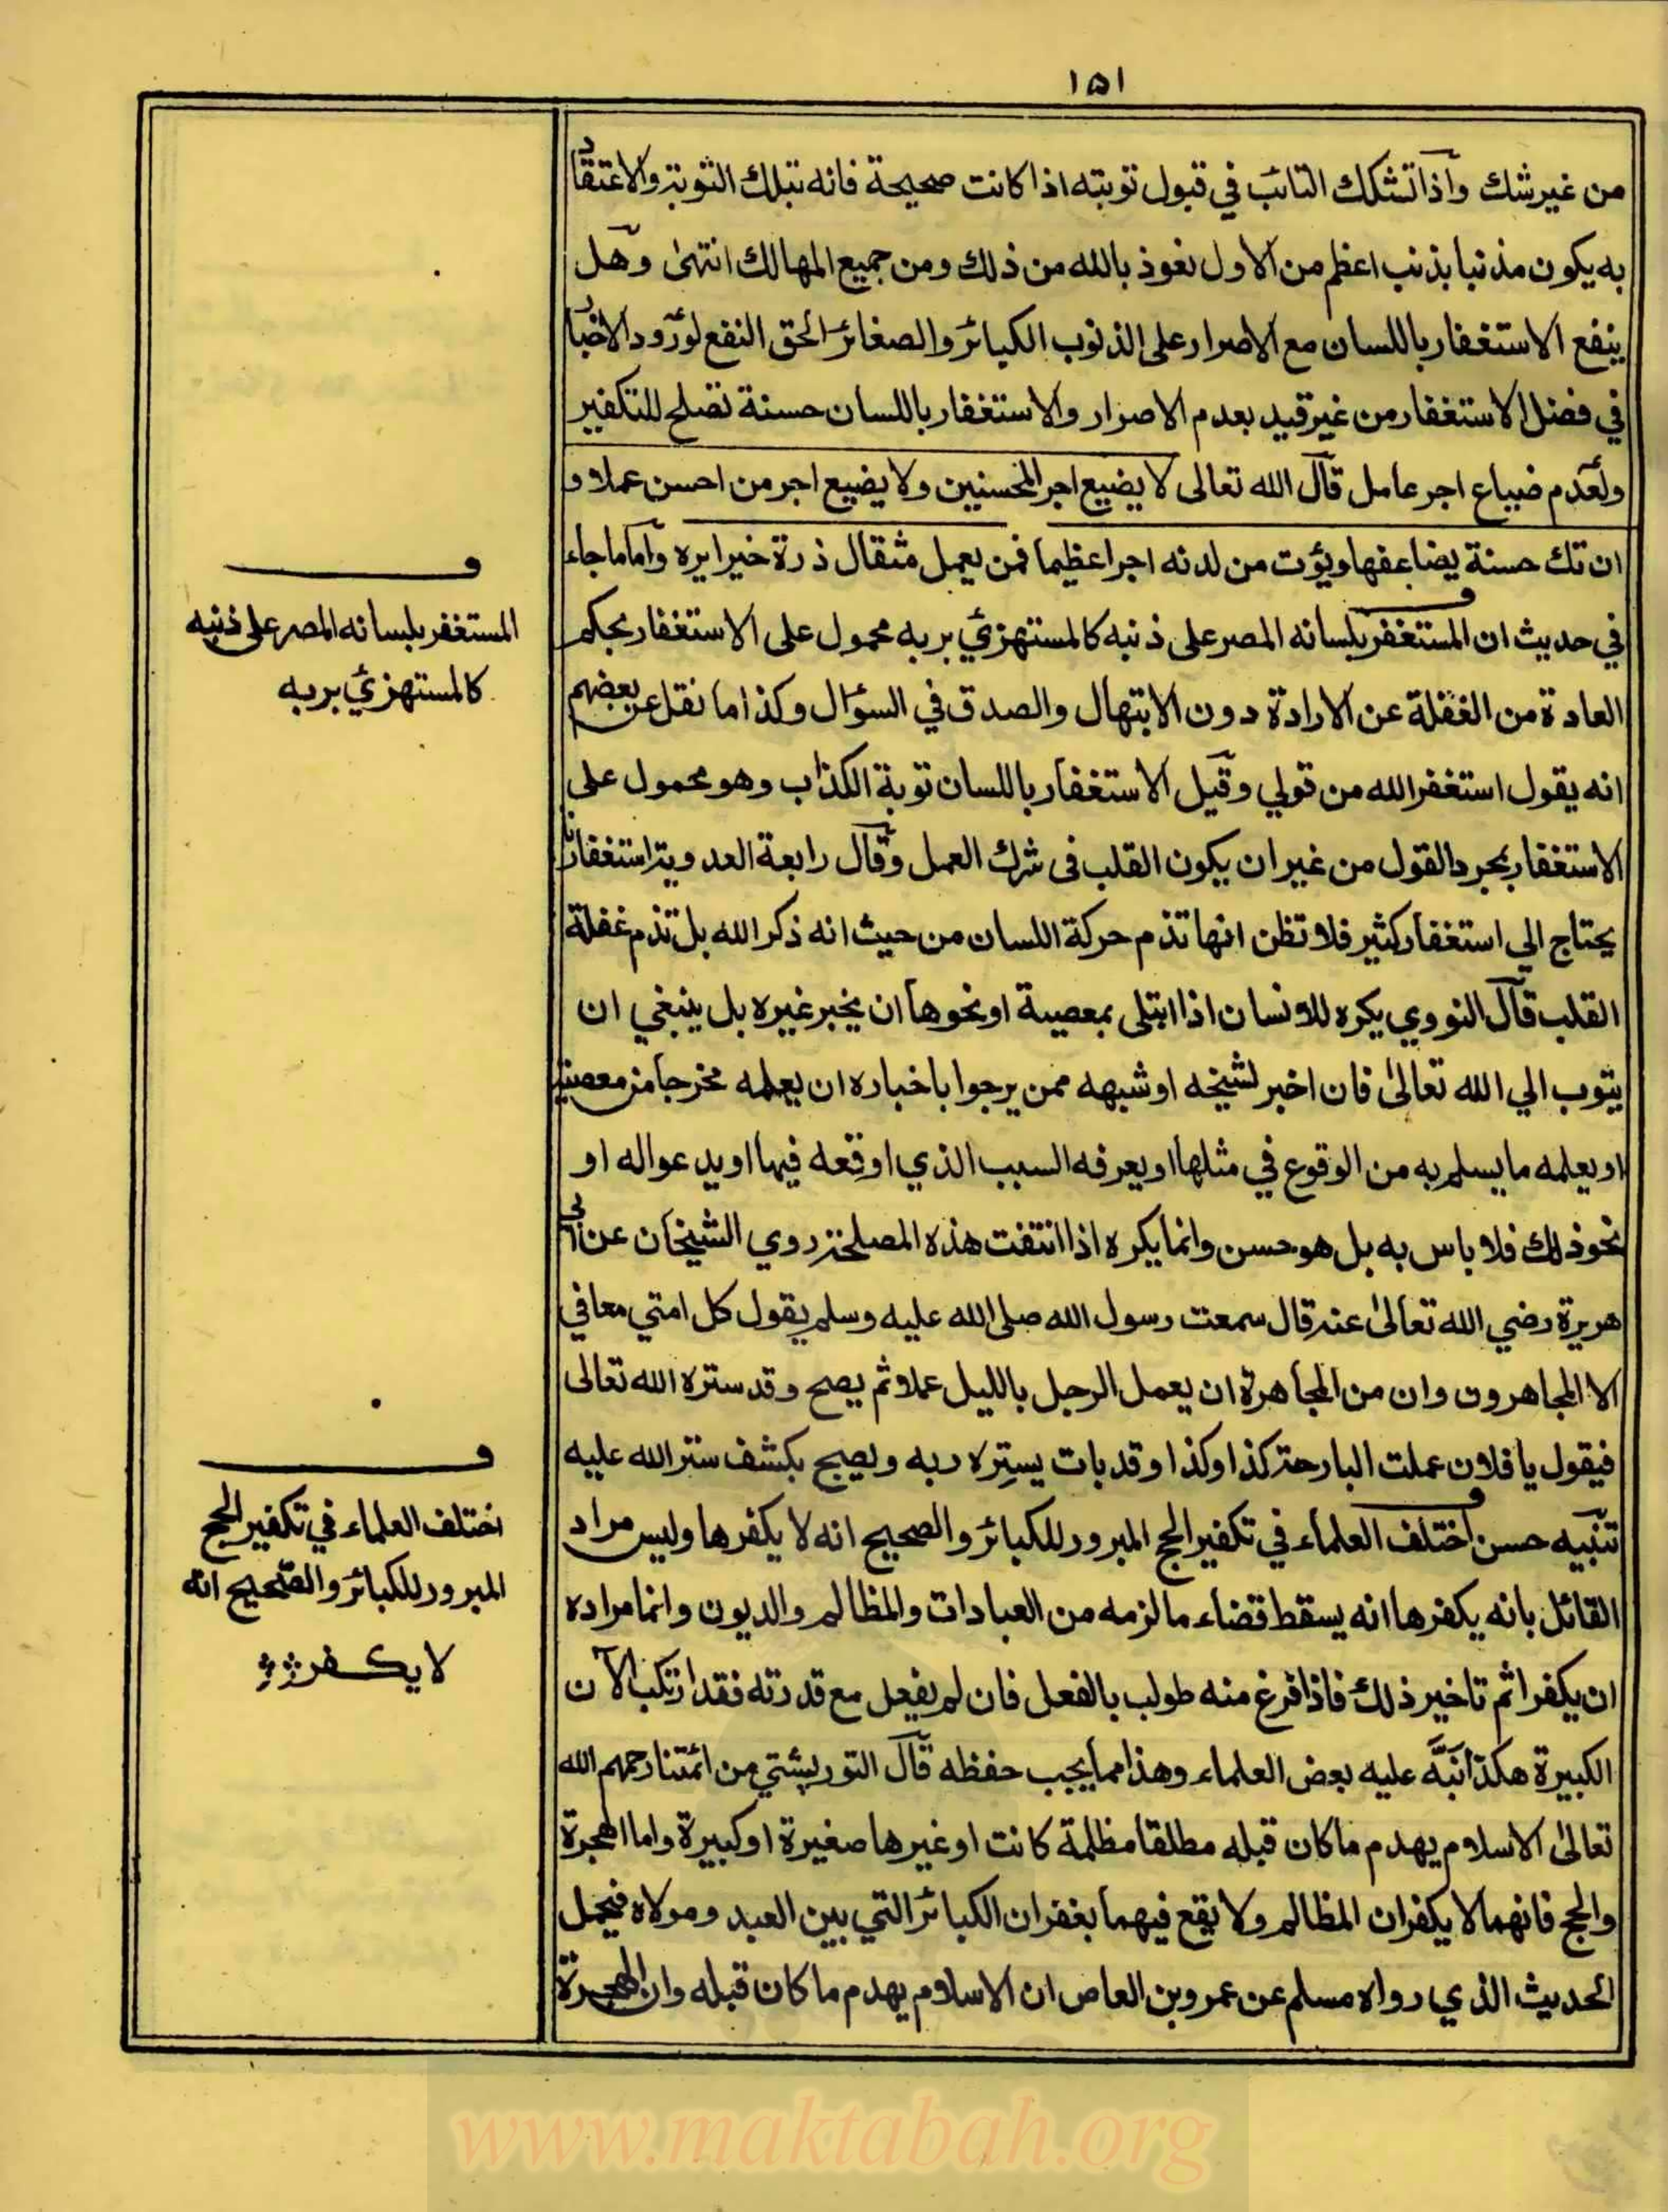 ١٥١
من غير شك واذا تشكك التائب في قبول توبته اذا كانت صحيحة فانه بتلك التوبة والاعتقاد
به يكون مذنبا بذنب اعظم من الاول نعوذ بالله من ذلك ومن جميع المهالك انتهى وهل
ينفع الاستغفار باللسان مع الاصرار على الذنوب الكبائر والصغائر الحق النفع لورود الاخبار
في فضل الاستغفار من غير قيد بعدم الاصرار والاستغفار باللسان حسنة تصلح للتكفير
ولعدم ضياع اجر عامل قال الله تعالى لا يضيع اجر المحسنين ولا يضيع اجر من احسن عملا و
ان تك حسنة يضاعفها ويؤت من لدنه اجرا عظيما فمن يعمل مثقال ذرة خيرا يره واما ما جاء
في حديث ان المستغفر بلسانه المصر على ذنبه كالمستهزئ بربه محمول على الاستغفار بحكم
العادة من الغفلة عن الارادة دون الابتهال والصدق في السؤال وكذا ما نقل عن بعضهم
انه يقول استغفر الله من قولي وقيل الاستغفار باللسان توبة الكذاب وهو محمول على
الاستغفار بمجرد القول من غير ان يكون القلب فى شرك العمل وقال رابعة العدوية استغفارنا
يحتاج الي استغفار كثير فلا تظن انها تذم حركة اللسان من حيث انه ذكر الله بل تذم غفلة
القلب قال النووي يكره للانسان اذا ابتلى بمعصية او نحوها ان يخبر غيره بل ينبغي ان
يتوب الي الله تعالى فان اخبر لشيخه او شبهه ممن يرجوا باخباره ان يعلمه مخرجا من معصيته
او يعلمه ما يسلم به من الوقوع في مثلها او يعرفه السبب الذي اوقعه فيها او يدعو اله او
نحو ذلك فلا باس به بل هو حسن وانما يكره اذا انتفت هذه المصلحة روي الشيخان عن ابى
هريرة رضي الله تعالى عنه قال سمعت رسول الله صلى الله عليه وسلم يقول كل امتي معافي
الا المجاهرون وان من المجاهرة ان يعمل الرجل بالليل عملا ثم يصبح وقد ستره الله تعالى
فيقول يا فلان عملت البارحة كذا وكذا وقد بات يستره ربه ويصبح بكشف ستر الله عليه
تنبيه حسن اختلف العلماء في تكفير الحج المبرور للكبائر والصحيح انه لا يكفرها وليس مراد
القائل بانه يكفرها انه يسقط قضاء ما لزمه من العبادات والمظالم والديون وانما مراده
ان يكفر اثم تاخير ذلك فاذا فرغ منه طولب بالفعل فان لم يفعل مع قدرته فقد ارتكب الآن
الكبيرة هكذا نبه عليه بعض العلماء وهذا مما يجب حفظه قال التوربشتي من ائمتنا رحمهم الله
تعالى الاسلام يهدم ما كان قبله مطلقا مظلمة كانت او غيرها صغيرة او كبيرة واما الهجرة
والحج فانهما لا يكفران المظالم ولا يقع فيهما بغفران الكبائر التي بين العبد ومولاه فيحمل
الحديث الذي رواه مسلم عن عمرو بن العاص ان الاسلام يهدم ما كان قبله وان الهجرة
و
المستغفر بلسانه المصر على ذنبه
كالمستهزئ بربه
و
اختلف العلماء في تكفير الحج
المبرور للكبائر والصحيح انه
لا يكفر
www.maktabah.org